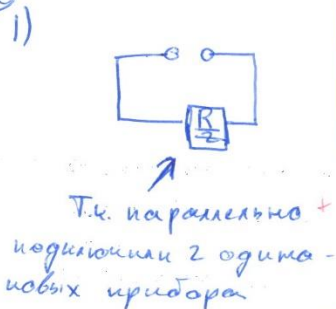 1)
R
2
Т.к. параллельно +
подключили 2 одина-
ковых прибора